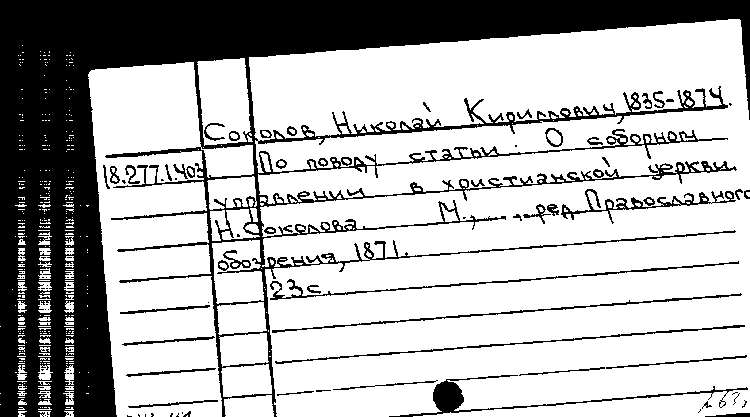 Соколов, Николай Кириллович, 1835-1874.
18.277.1.403. По поводу статьи: О соборном
управлении в христианской церкви.
Н. Соколова. М., ... , ред. Православного
обозрения, 1871.
23 с.